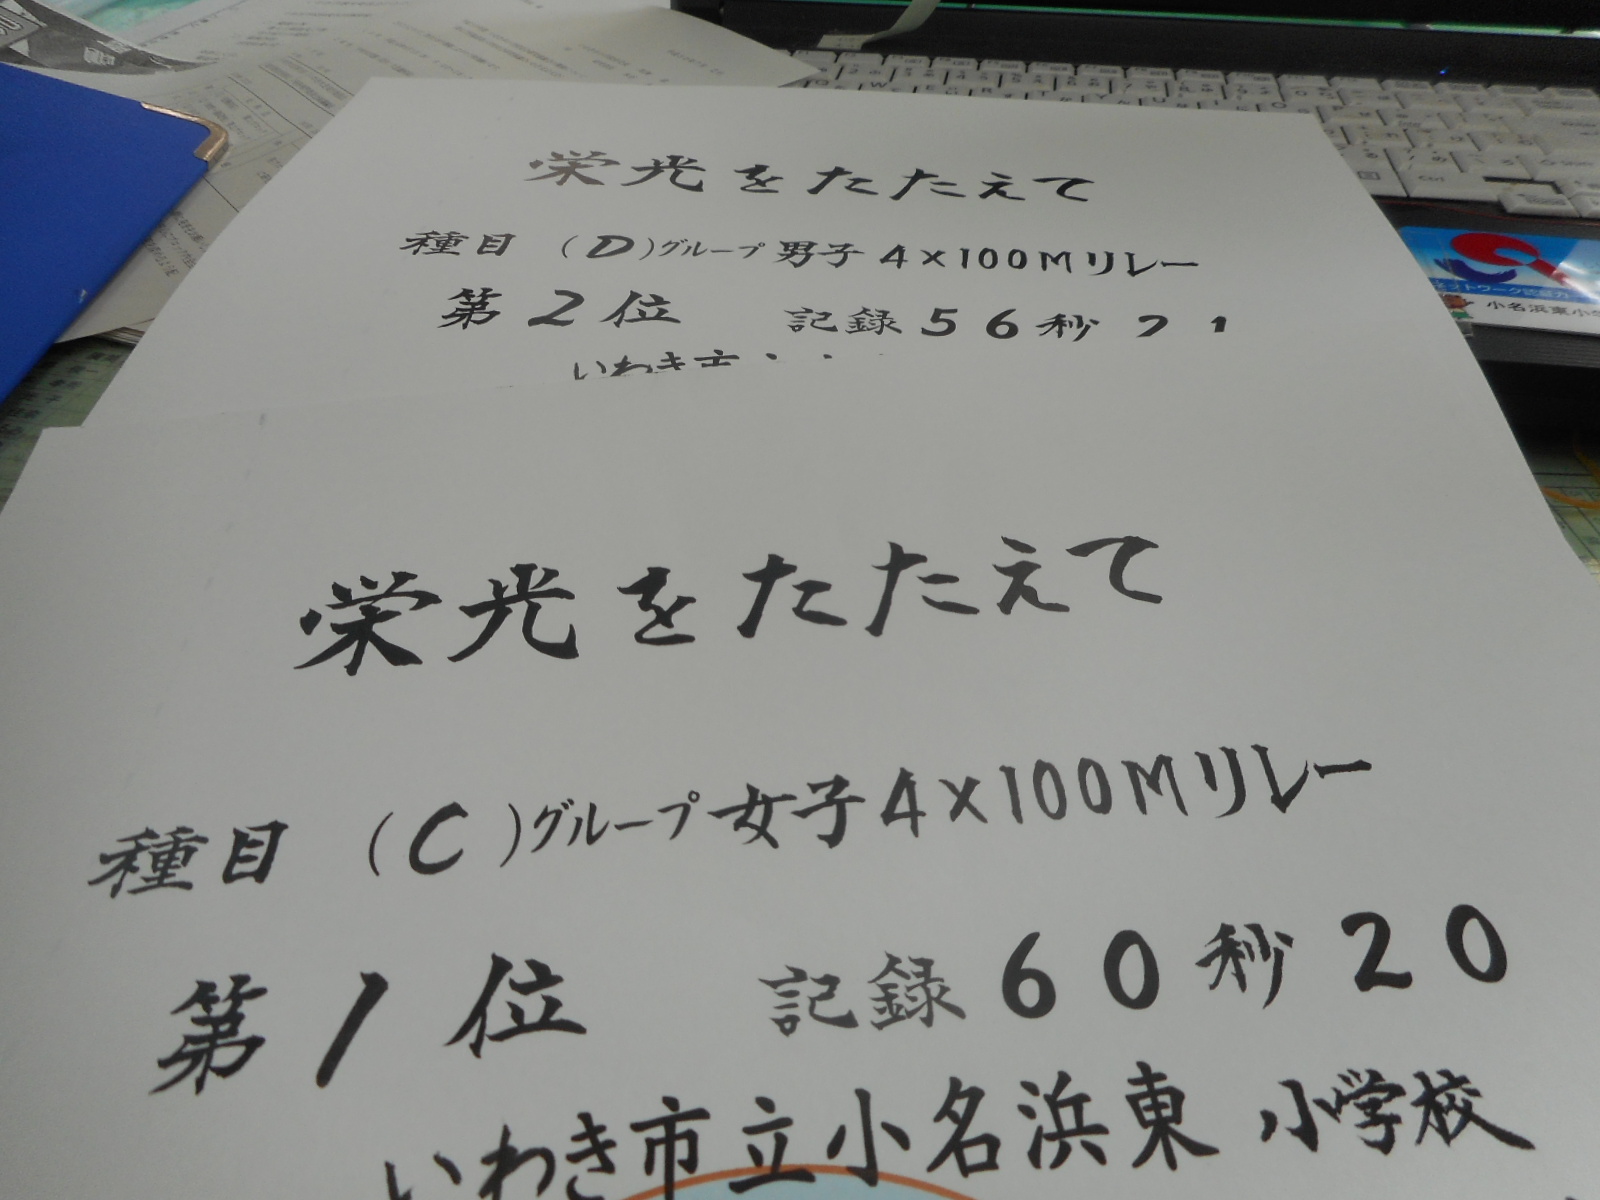 栄光をたたえて
種目 (D)グループ 男子 4×100Mリレー
第2位 記録 56秒 71
いわき市
栄光をたたえて
種目 (C)グループ 女子 4×100Mリレー
第1位 記録 60秒20
いわき市立小名浜東小学校
小名浜東小